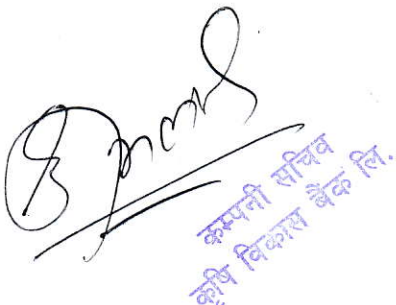 कम्पनी सचिव
कृषि विकास बैंक लि.